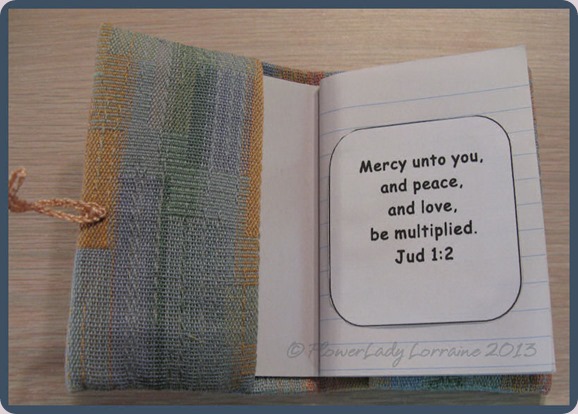 Mercy unto you,
and peace,
and love,
be multiplied.
Jud 1:2
© FlowerLady Lorraine 2013